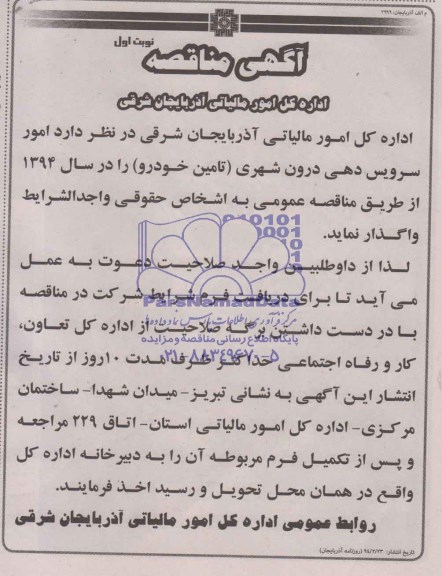 م الف آذربایجان: ۲۹۹۹
نوبت اول
آگهی مناقصه
اداره کل امور مالیاتی آذربایجان شرقی
اداره کل امور مالیاتی آذربایجان شرقی در نظر دارد امور
سرویس دهی درون شهری (تامین خودرو) را در سال ۱۳۹۴
از طریق مناقصه عمومی به اشخاص حقوقی واجدالشرایط
واگذار نماید.
لذا از داوطلبین واجد صلاحیت دعوت به عمل
می آید تا برای دریافت فرم شرایط شرکت در مناقصه
با در دست داشتن برگه صلاحیت از اداره کل تعاون،
کار و رفاه اجتماعی حداکثر ظرف مدت ۱۰روز از تاریخ
انتشار این آگهی به نشانی تبریز- میدان شهدا- ساختمان
مرکزی- اداره کل امور مالیاتی استان- اتاق ۲۲۹ مراجعه
و پس از تکمیل فرم مربوطه آن را به دبیرخانه اداره کل
واقع در همان محل تحویل و رسید اخذ فرمایند.
روابط عمومی اداره کل امور مالیاتی آذربایجان شرقی
تاریخ انتشار: ۹۴/۲/۲۳ (روزنامه آذربایجان)
ParsNamadData
پایگاه اطلاع رسانی مناقصه و مزایده
۰۲۱-۸۸۳۴۹۶۷۰-۵